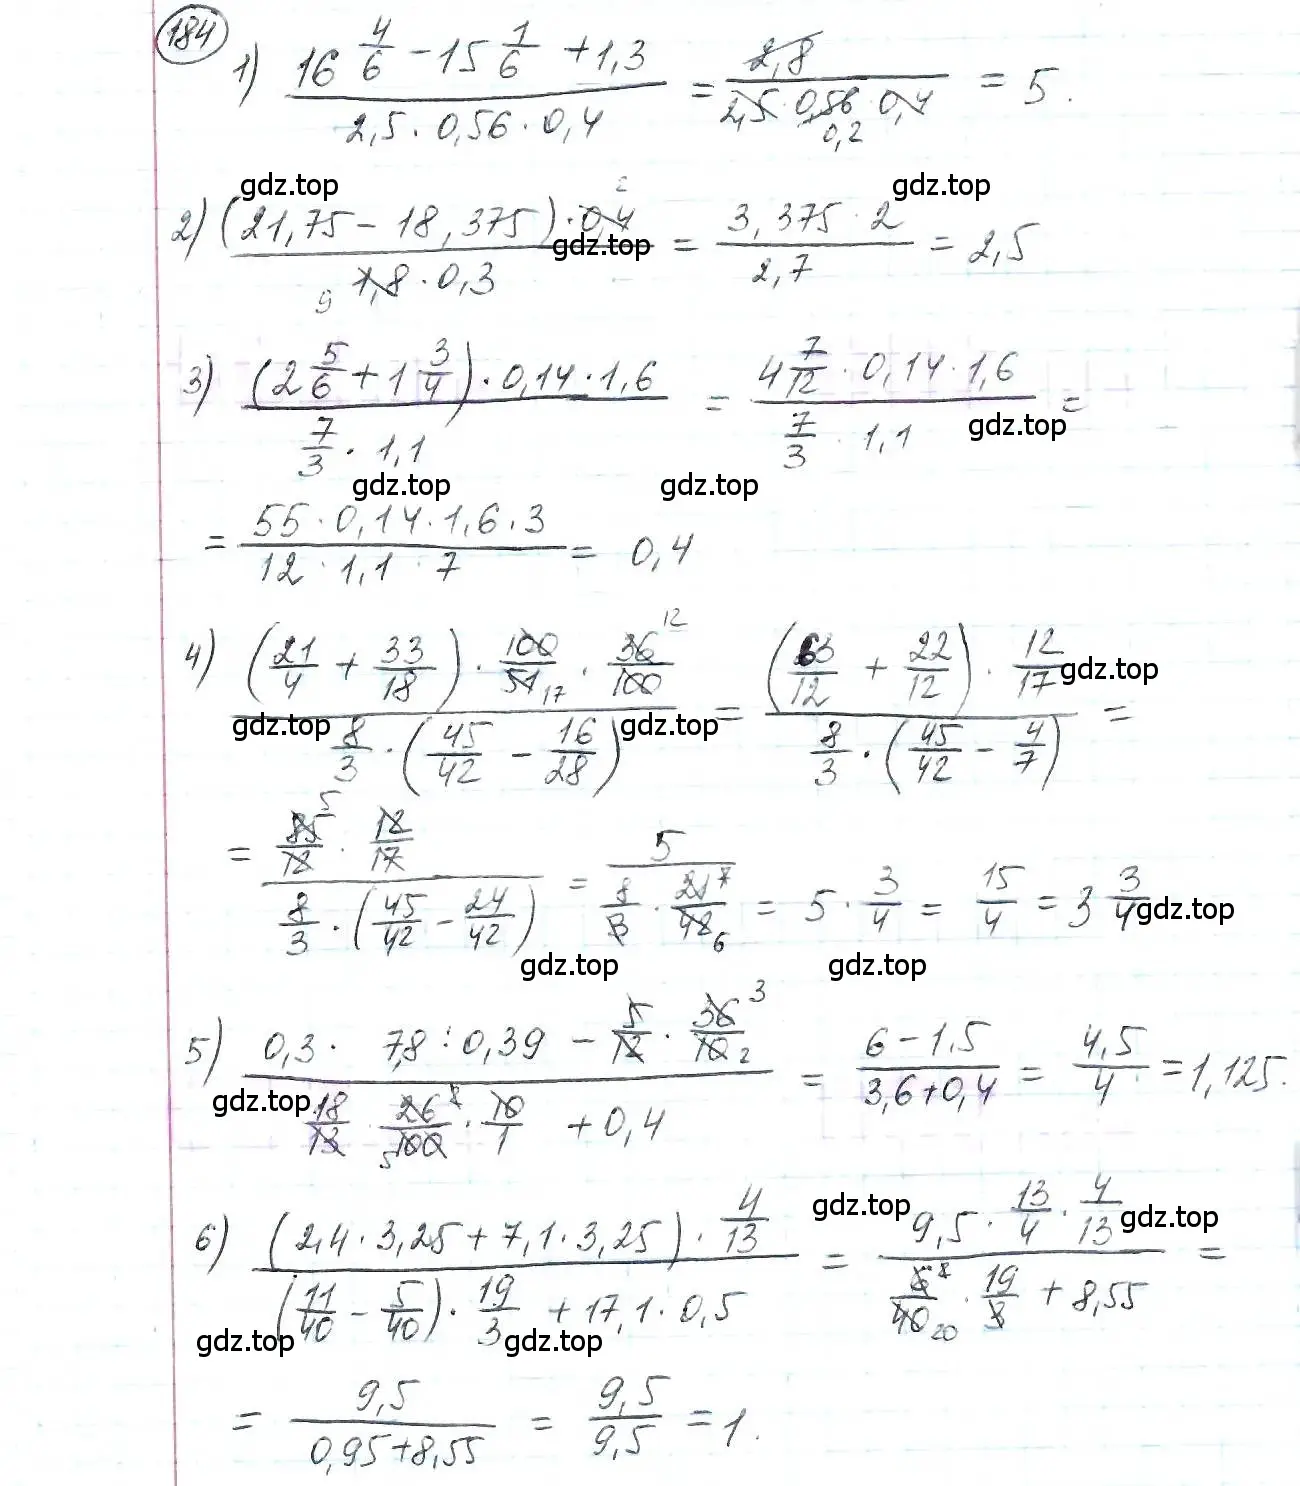 184
1) (16 4/6 - 15 1/6 + 1,3)/(2,5 · 0,56 · 0,4) = 2,8/(2,5 · 0,56 · 0,4) = 5.
0,2
gdz.top gdz.top
2) ((21,75 - 18,375) · 0,4 2)/(9 1,8 · 0,3) = (3,375 · 2)/2,7 = 2,5
gdz.top
3) ((2 5/6 + 1 3/4) · 0,14 · 1,6)/(7/3 · 1,1) = (4 7/12 · 0,14 · 1,6)/(7/3 · 1,1) =
gdz.top
gdz.top gdz.top
= (55 · 0,14 · 1,6 · 3)/(12 · 1,1 · 7) = 0,4
4) ((21/4 + 33/18) · 100/51 17 · 36 12/100)/(8/3 · (45/42 - 16/28)) = ((63/12 + 22/12) · 12/17)/(8/3 · (45/42 - 4/7)) =
gdz.top
gdz.top gdz.top
= (85 5/12 · 12/17)/(8/3 · (45/42 - 24/42)) = 5/(8/3 · 21 7/42 6) = 5 · 3/4 = 15/4 = 3 3/4
gdz.top
gdz.top gdz.top
5) (0,3 · 7,8 : 0,39 - 5/12 · 36 3/10 2)/(18/13 · 26 2/100 5 · 10/1 + 0,4) = (6 - 1,5)/(3,6 + 0,4) = 4,5/4 = 1,125.
gdz.top
6) ((2,4 · 3,25 + 7,1 · 3,25) · 4/13)/((11/40 - 5/40) · 19/3 + 17,1 · 0,5) = (9,5 · 13/4 · 4/13)/(6 2/40 20 · 19/3 + 8,55) =
gdz.top gdz.top
gdz.top gdz.top
= 9,5/(0,95 + 8,55) = 9,5/9,5 = 1.